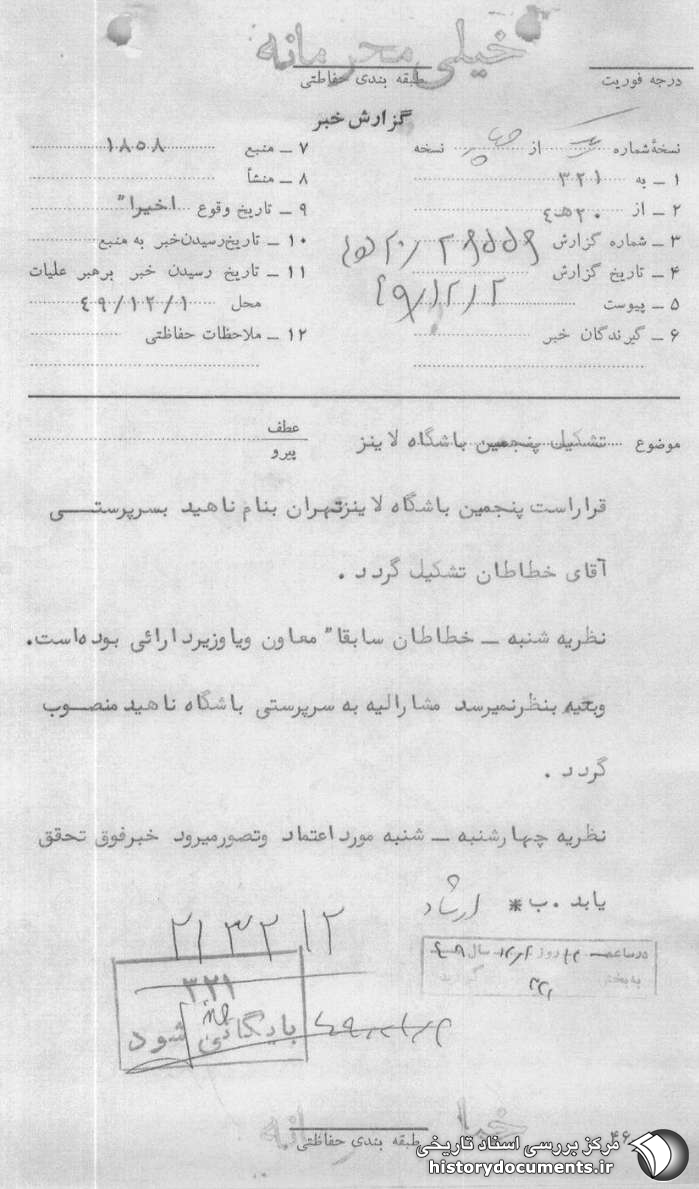 خیلی محرمانه
درجه فوریت
طبقه بندی حفاظتی
گزارش خبر
نسخهٔ شماره یک از چهار نسخه
۱ ـ به ۳۲۱
۲ ـ از ۲۰ هـ ٤
۳ ـ شماره گزارش
۴ ـ تاریخ گزارش
۵ ـ پیوست
۶ ـ گیرندگان خبر
۷ ـ منبع ۱۸۵۸
۸ ـ منشأ
۹ ـ تاریخ وقوع اخیرا"
۱۰ ـ تاریخ رسیدن خبر به منبع
۱۱ ـ تاریخ رسیدن خبر برهبر عملیات
محل ٤۹/۱۲/۱
۱۲ ـ ملاحظات حفاظتی
موضوع تشکیل پنجمین باشگاه لاینز
عطف
پیرو
قراراست پنجمین باشگاه لاینزتهران بنام ناهید بسرپرستـــی
آقای خطاطان تشکیل گردد .
نظریه شنبه ـ خطاطان سابقا" معاون ویا وزیردارائی بوده‌است.
بنظرنمیرسد مشارالیه به سرپرستی باشگاه ناهید منصــوب
گردد .
نظریه چهارشنبه ـ شنبه مورداعتماد وتصورمیرود خبرفوق تحقق
یابد .ب* ارشاد
۲۱۳۲۱۲
۳۲۱
بایگانی شود
خیلی محرمانه
طبقه بندی حفاظتی
۴۶
مرکز بررسی اسناد تاریخی
historydocuments.ir